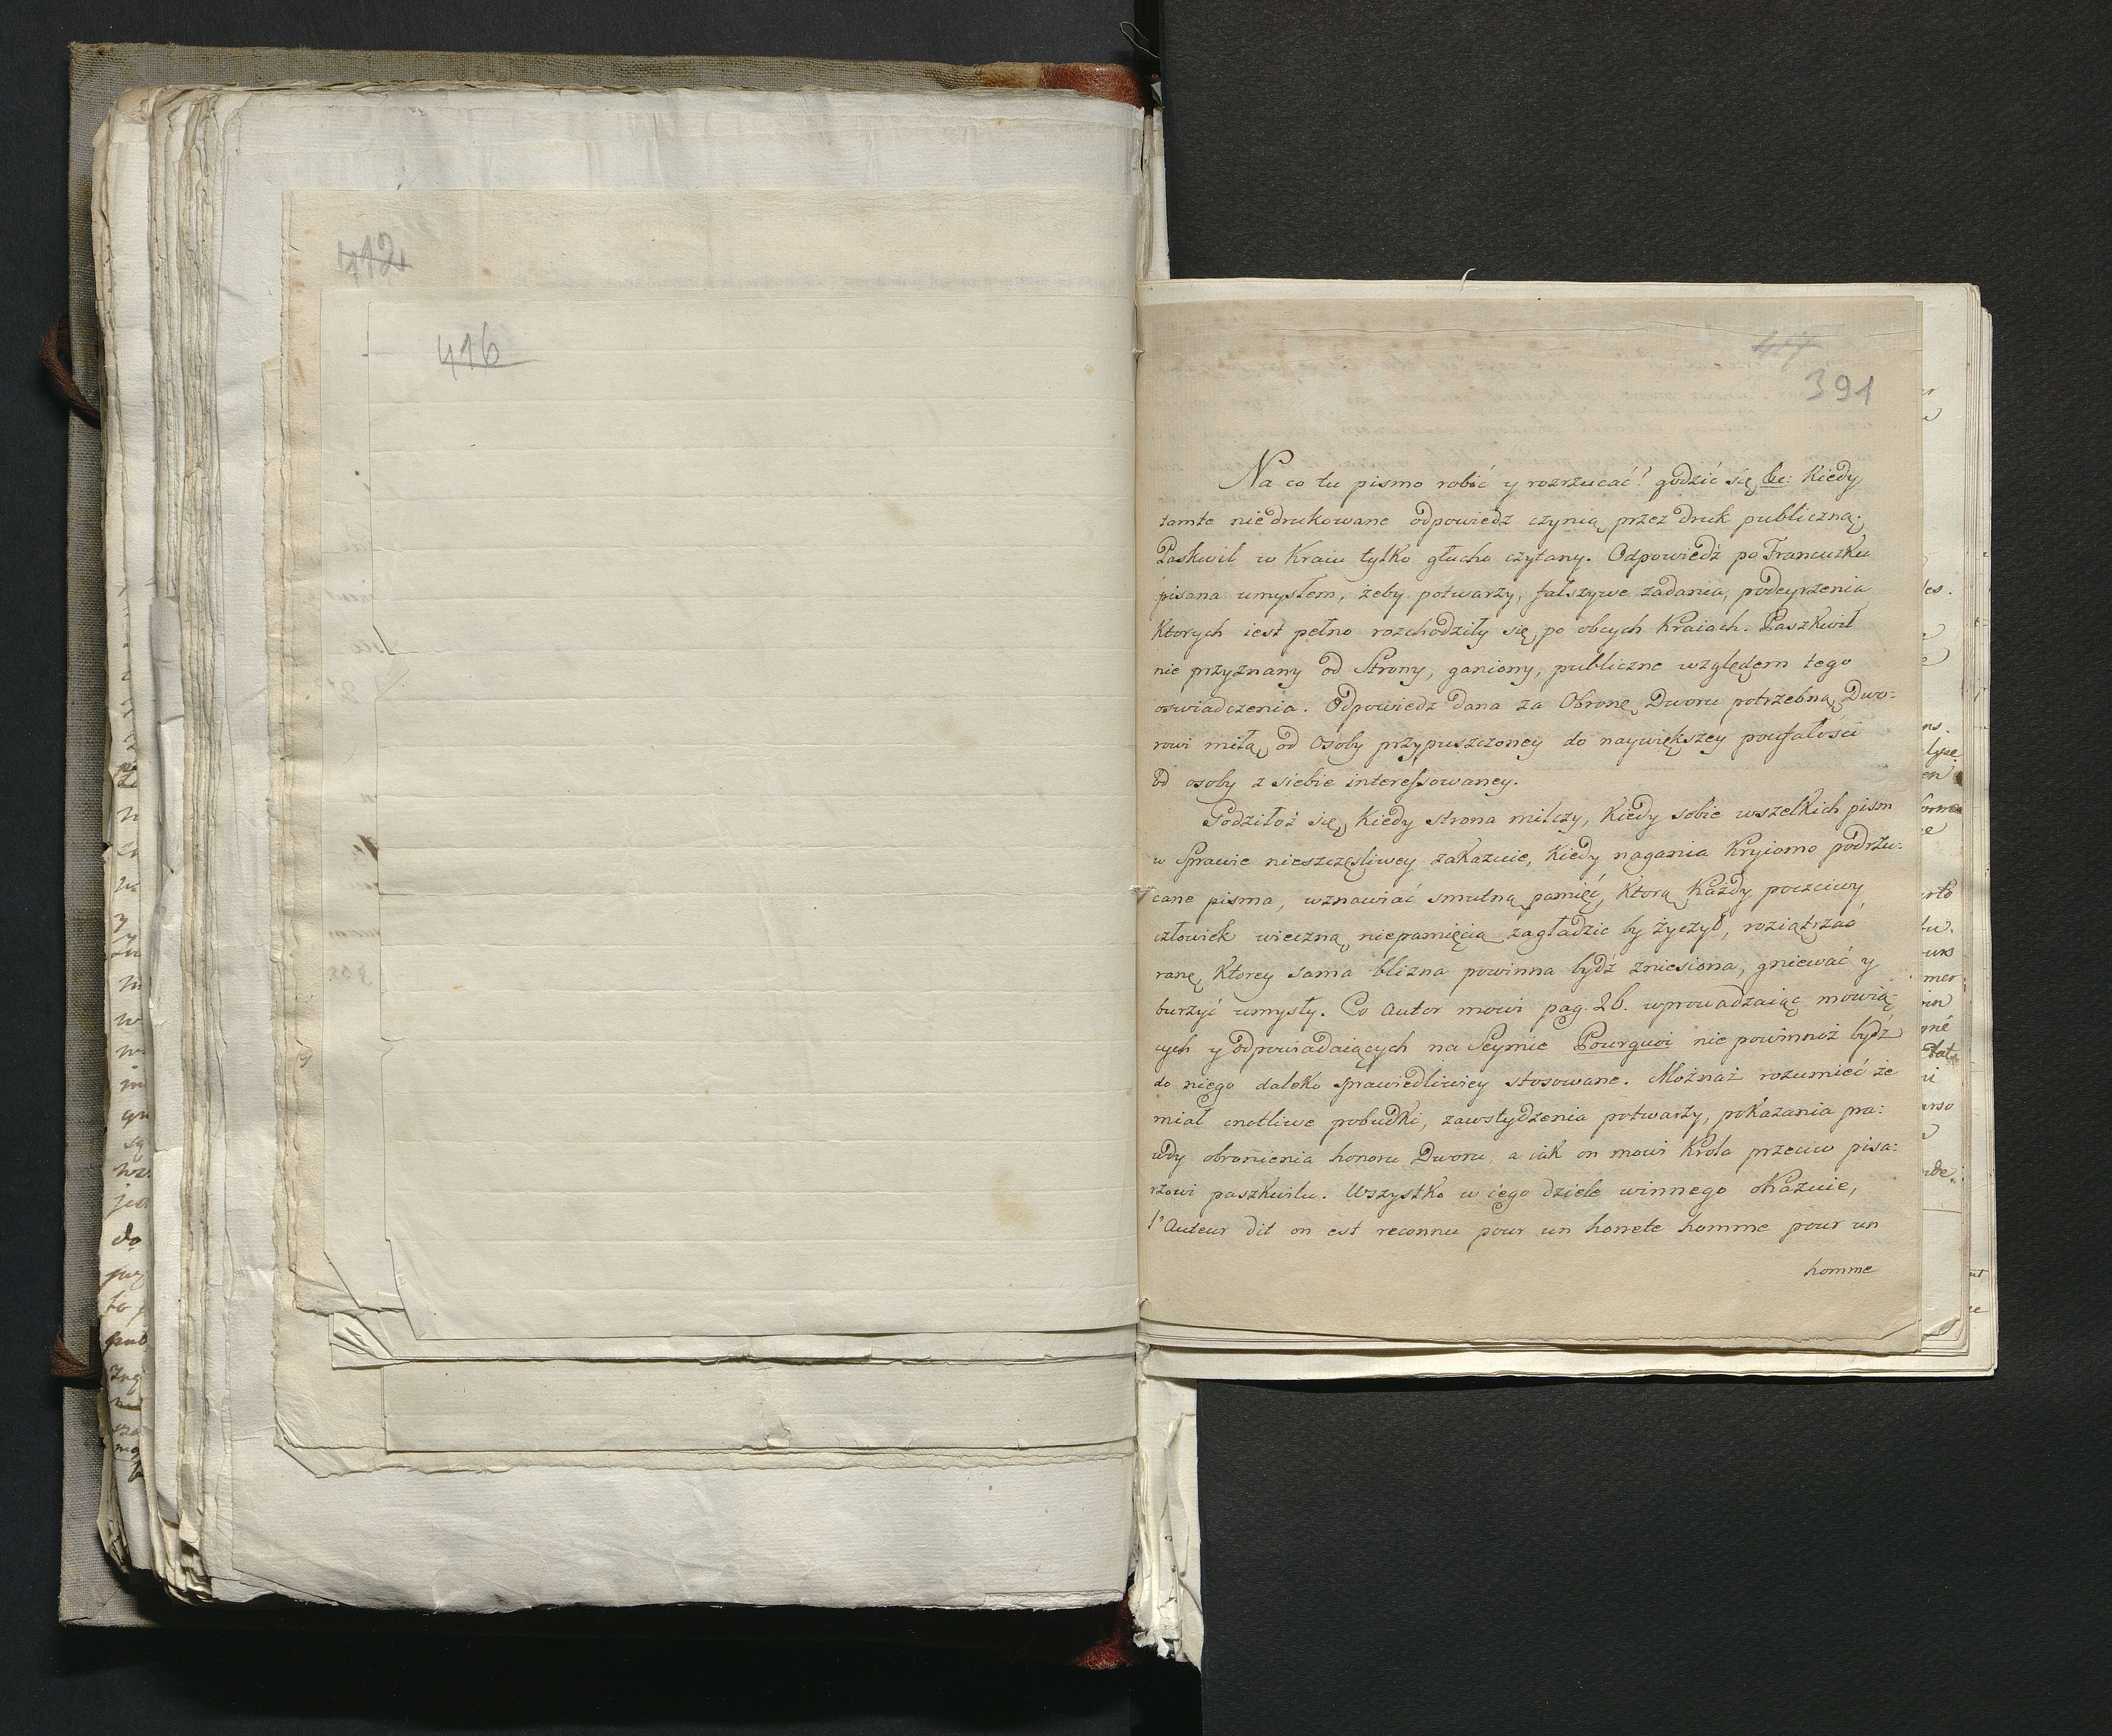 412
416
417
391
Na co tu pismo robić y rozrzucać? godzić się &c: Kiedy
tamte niedrukowane odpowiedz czynią przez druk publiczną.
Paskwil w Kraiu tylko głucho czytany. Odpowiedź po Francuzku
pisana umysłem, żeby potwarzy, fałszywe zadania, podeyrzenia
Ktorych iest pełno rozchodziły się po obcych Kraiach. Paszkwil
nie przyznany od Strony, ganiony, publiczne względem tego
oswiadczenia. Odpowiedz dana za Obronę Dworu potrzebną, Dwo:
rowi miłą, od Osoby przypuszczoney do naywiększey poufałości
od osoby z siebie interessowaney.
Godziłoż się, Kiedy strona milczy, Kiedy sobie wszelkich pism
w Sprawie nieszczęsliwey zakazuie, Kiedy nagania Kryiomo podrzu:
cane pisma, wznawiać smutną pamięć, Ktorą Każdy poczciwy
człowiek wieczną niepamięcią zagładzic by życzył, roziątrzac
ranę, Ktorey sama blizna powinna bydź zniesiona, gniewać y
burzyć umysły. Co Autor mowi pag. 26. wprowadzaiąc mowią:
cych y odpowiadaiących na Seymie Pourquoi nie powinnoż bydź
do niego daleko sprawiedliwiey stosowane. Możnaż rozumieć że
miał cnotliwe pobudki, zawstydzenia potwarzy, pokazania pra:
wdy obronienia honoru Dworu, a iak on mowi Krola przeciw pisa:
rzowi paszkwilu. Wszystko w iego dziele winnego okazuie,
l'Auteur dit on est reconnu pour un honnete homme pour un
homme